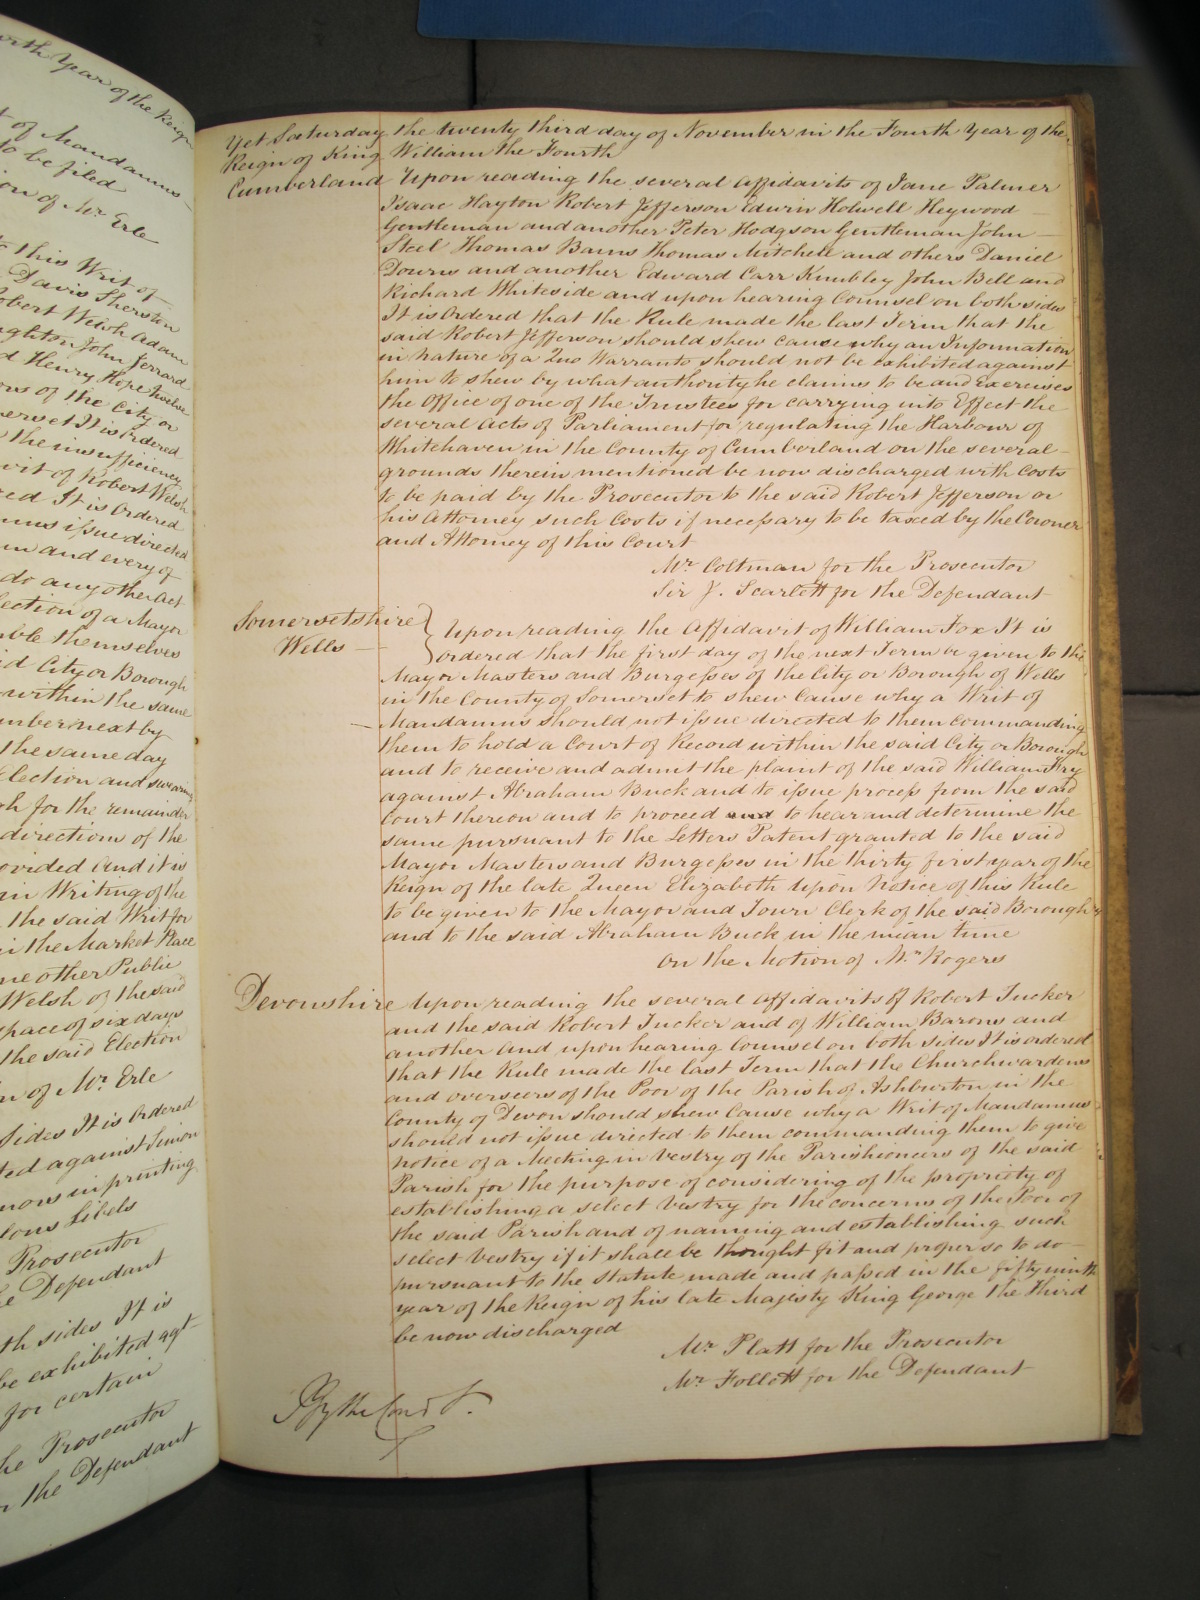 urth Year of the Reign
t of Mandamus
to be filed
ion of Mr Erle
this Writ of
Davis Sherston
obert Welsh Adam
ughton John Jerrard
d Henry Hope Twelve
ons of the City or
merset It is Ordered
the insufficiency
avit of Robert Welsh
red It is Ordered
mus issue directed
em and every of
do any other act
lection of a Mayor
mble themselves
id City or Borough
within the same
ember next by
the same day
Election and swearing
gh for the remainder
directions of the
ovided And it is
in Writing of the
the said Writ for
in the Market Place
me other Public
Welsh of the said
space of six days
the said Election
n of Mr Erle
sides It is Ordered
ted against Simon
mons in printing
lous Libels
Prosecutor
he Defendant
th sides It is
be exhibited agt
for certain
he Prosecutor
r the Defendant
Yet Saturday the twenty third day of November in the Fourth Year of the
Reign of King William the Fourth
Cumberland Upon reading the several affidavits of Jane Palmer
Isaac Hayton Robert Jefferson Edwin Holwell Heywood
Gentleman and another Peter Hodgson Gentleman John
Steel Thomas Bams Thomas Mitchell and others Daniel
Downs and another Edward Carr Knubley John Bell and
Richard Whiteside and upon hearing Counsel on both sides
It is Ordered that the Rule made the last Term that the
said Robert Jefferson should shew cause why an Information
in nature of a Quo Warranto should not be exhibited against
him to shew by what authority he claims to be and exercises
the Office of one of the Trustees for carrying into Effect the
several Acts of Parliament for regulating the Harbour of
Whitehaven in the County of Cumberland on the several
grounds therein mentioned be now discharged with Costs
to be paid by the Prosecutor to the said Robert Jefferson or
his Attorney such Costs if necessary to be taxed by the Coroner
and Attorney of this Court
Mr Coltman for the Prosecutor
Sir J. Scarlett for the Defendant
Somersetshire Upon reading the Affidavit of William Fox It is
Wells ordered that the first day of the next Term be given to the
Mayor Masters and Burgesses of the City or Borough of Wells
in the County of Somerset to shew Cause why a Writ of
Mandamus should not issue directed to them commanding
them to hold a Court of Record within the said City or Borough
and to receive and admit the plaint of the said William Fry
against Abraham Buck and to issue process from the said
Court thereon and to proceed and to hear and determine the
same pursuant to the Letters Patent granted to the said
Mayor Masters and Burgesses in the thirty first year of the
Reign of the late Queen Elizabeth Upon Notice of this Rule
to be given to the Mayor and Town Clerk of the said Borough
and to the said Abraham Buck in the mean time
On the Motion of Mr Rogers
Devonshire Upon reading the several affidavits of Robert Tucker
and the said Robert Tucker and of William Barons and
another And upon hearing Counsel on both sides It is ordered
that the Rule made the last Term that the Churchwardens
and overseers of the Poor of the Parish of Ashburton in the
County of Devon should shew Cause why a Writ of Mandamus
should not issue directed to them commanding them to give
notice of a Meeting in Vestry of the Parishioners of the said
Parish for the purpose of considering of the propriety of
establishing a select Vestry for the concerns of the Poor of
the said Parish and of naming and establishing such
select Vestry if it shall be thought fit and proper so to do
pursuant to the Statute made and passed in the fifty ninth
year of the Reign of his late Majesty King George the Third
be now discharged
Mr Platt for the Prosecutor
Mr Follett for the Defendant
By the Court